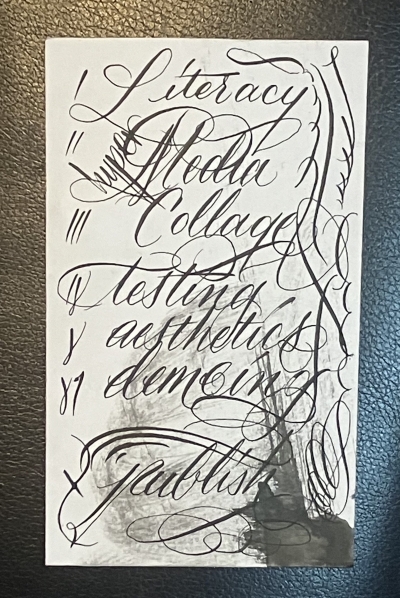 I Literacy
II hyper Media
III Collage
IV testing
V aesthetics
VI demoing
X publish